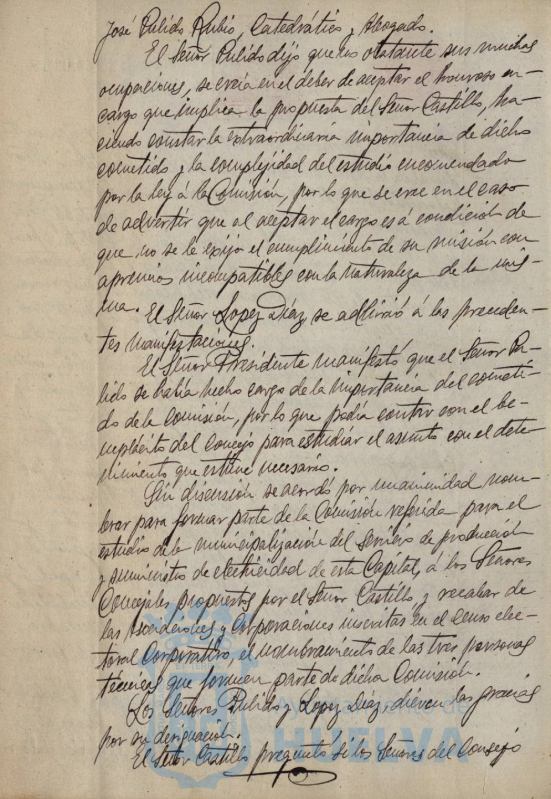 José Pulido Rubio, Catedrático y Abogado.
El Señor Pulido dijo que no obstante sus muchas
ocupaciones, se creía en el deber de aceptar el honroso en-
cargo que implica la propuesta del Señor Castillo, ha-
ciendo constar la extraordinaria importancia de dicho
cometido y la complejidad del estudio encomendado
por la ley á la Comisión, por lo que se cree en el caso
de advertir que al aceptar el cargo es á condición de
que no se le exija el cumplimiento de su misión con
apremios incompatibles con la naturaleza de la mis-
ma. El Señor Lopez Díaz se adhirió á las preceden-
tes manifestaciones.
El Señor Presidente manifestó que el Señor Pu-
lido se había hecho cargo de la importancia del cometi-
do de la Comisión, por lo que podía contar con el be-
neplácito del Concejo para estudiar el asunto con el dete
nimiento que estime necesario.
Sin discusión se acordó por unanimidad nom-
brar para formar parte de la Comisión referida para el
estudio de la municipalización del servicio de producción
y suministro de electricidad de esta Capital, á los Señores
Concejales propuestos por el Señor Castillo, y recabar de
las Asociaciones y Corporaciones inscritas en el Censo elec-
toral Corporativo, el nombramiento de las tres personas
técnicas que formen parte de dicha Comisión.
Los Señores Pulido y Lopez Díaz dieron las gracias
por su designación.
El Señor Castillo preguntó si los Señores del Consejo
Ayuntamiento de
HUELVA